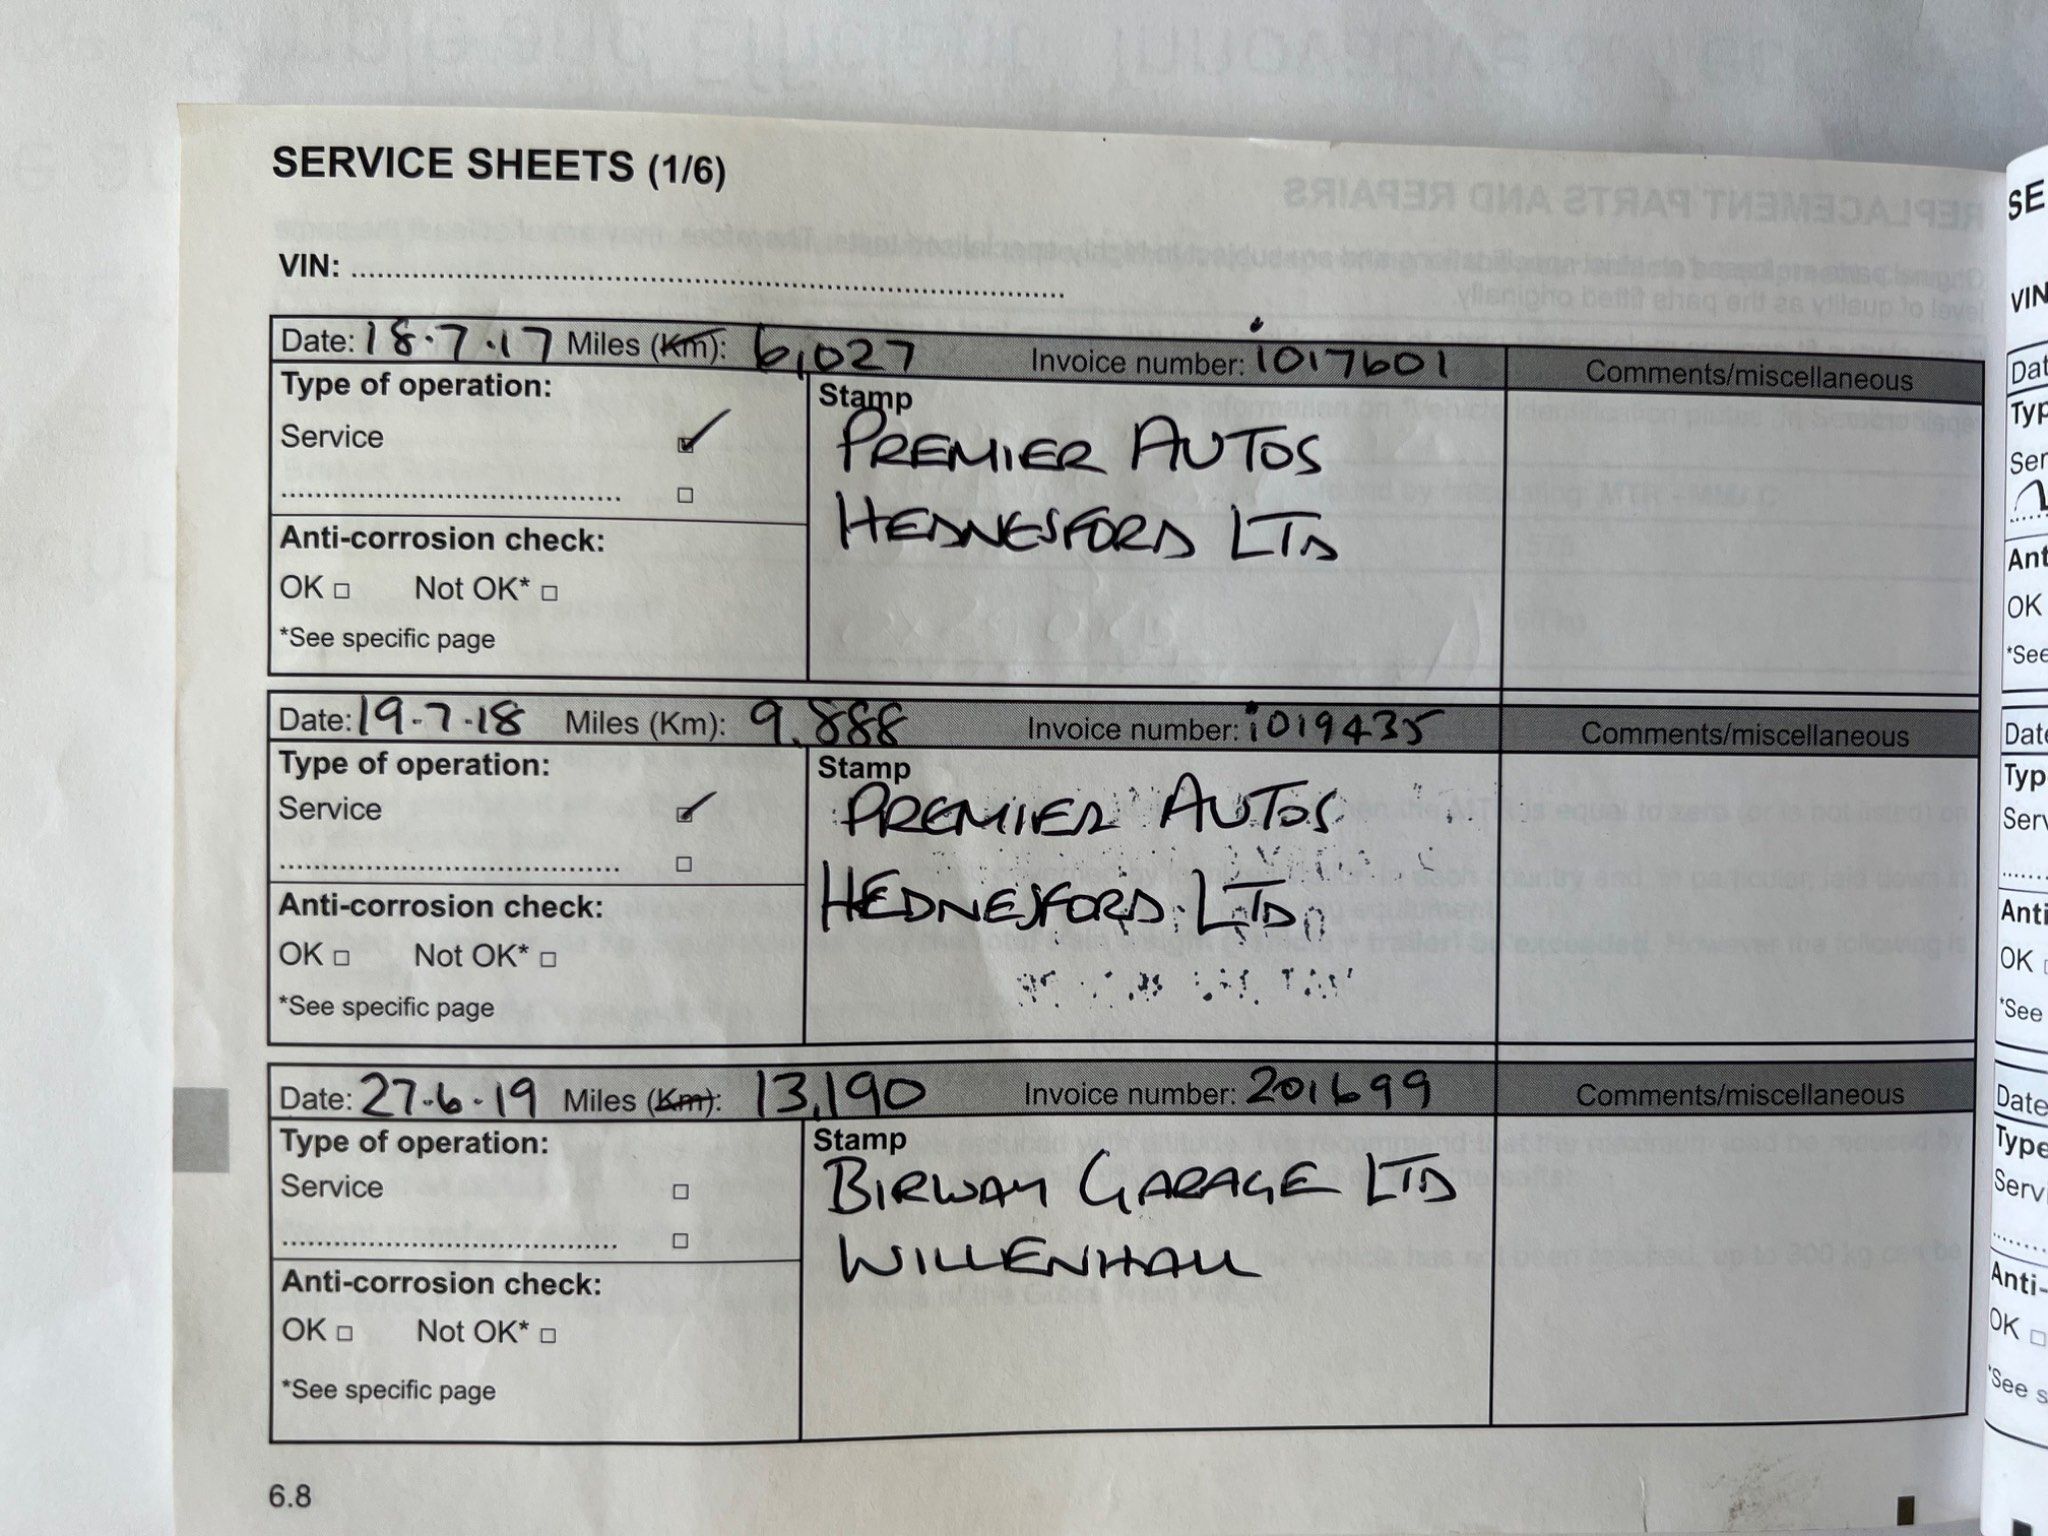 SERVICE SHEETS (1/6)
VIN:
Date: 18.7.17 Miles (Km): 6,027 Invoice number: i017601 Comments/miscellaneous
Type of operation:
Stamp
Service
PREMIER AUTOS
HEDNESFORD LTD
Anti-corrosion check:
OK □ Not OK* □
*See specific page
Date: 19-7-18 Miles (Km): 9,888 Invoice number: i019435 Comments/miscellaneous
Type of operation:
Stamp
Service
PREMIER AUTOS
HEDNESFORD LTD
Anti-corrosion check:
OK □ Not OK* □
*See specific page
Date: 27-6-19 Miles (Km): 13,190 Invoice number: 201699 Comments/miscellaneous
Type of operation:
Stamp
Service □
BIRWAY GARAGE LTD
WILLENHALL
Anti-corrosion check:
OK □ Not OK* □
*See specific page
6.8
REPLACEMENT PARTS AND REPAIRS
level of quality as the parts fitted originally.
SE
VIN
Dat
Typ
Ser
Ant
OK
*See
Date
Typ
Serv
Anti
OK
*See
Date
Type
Servi
Anti-
OK
*See s